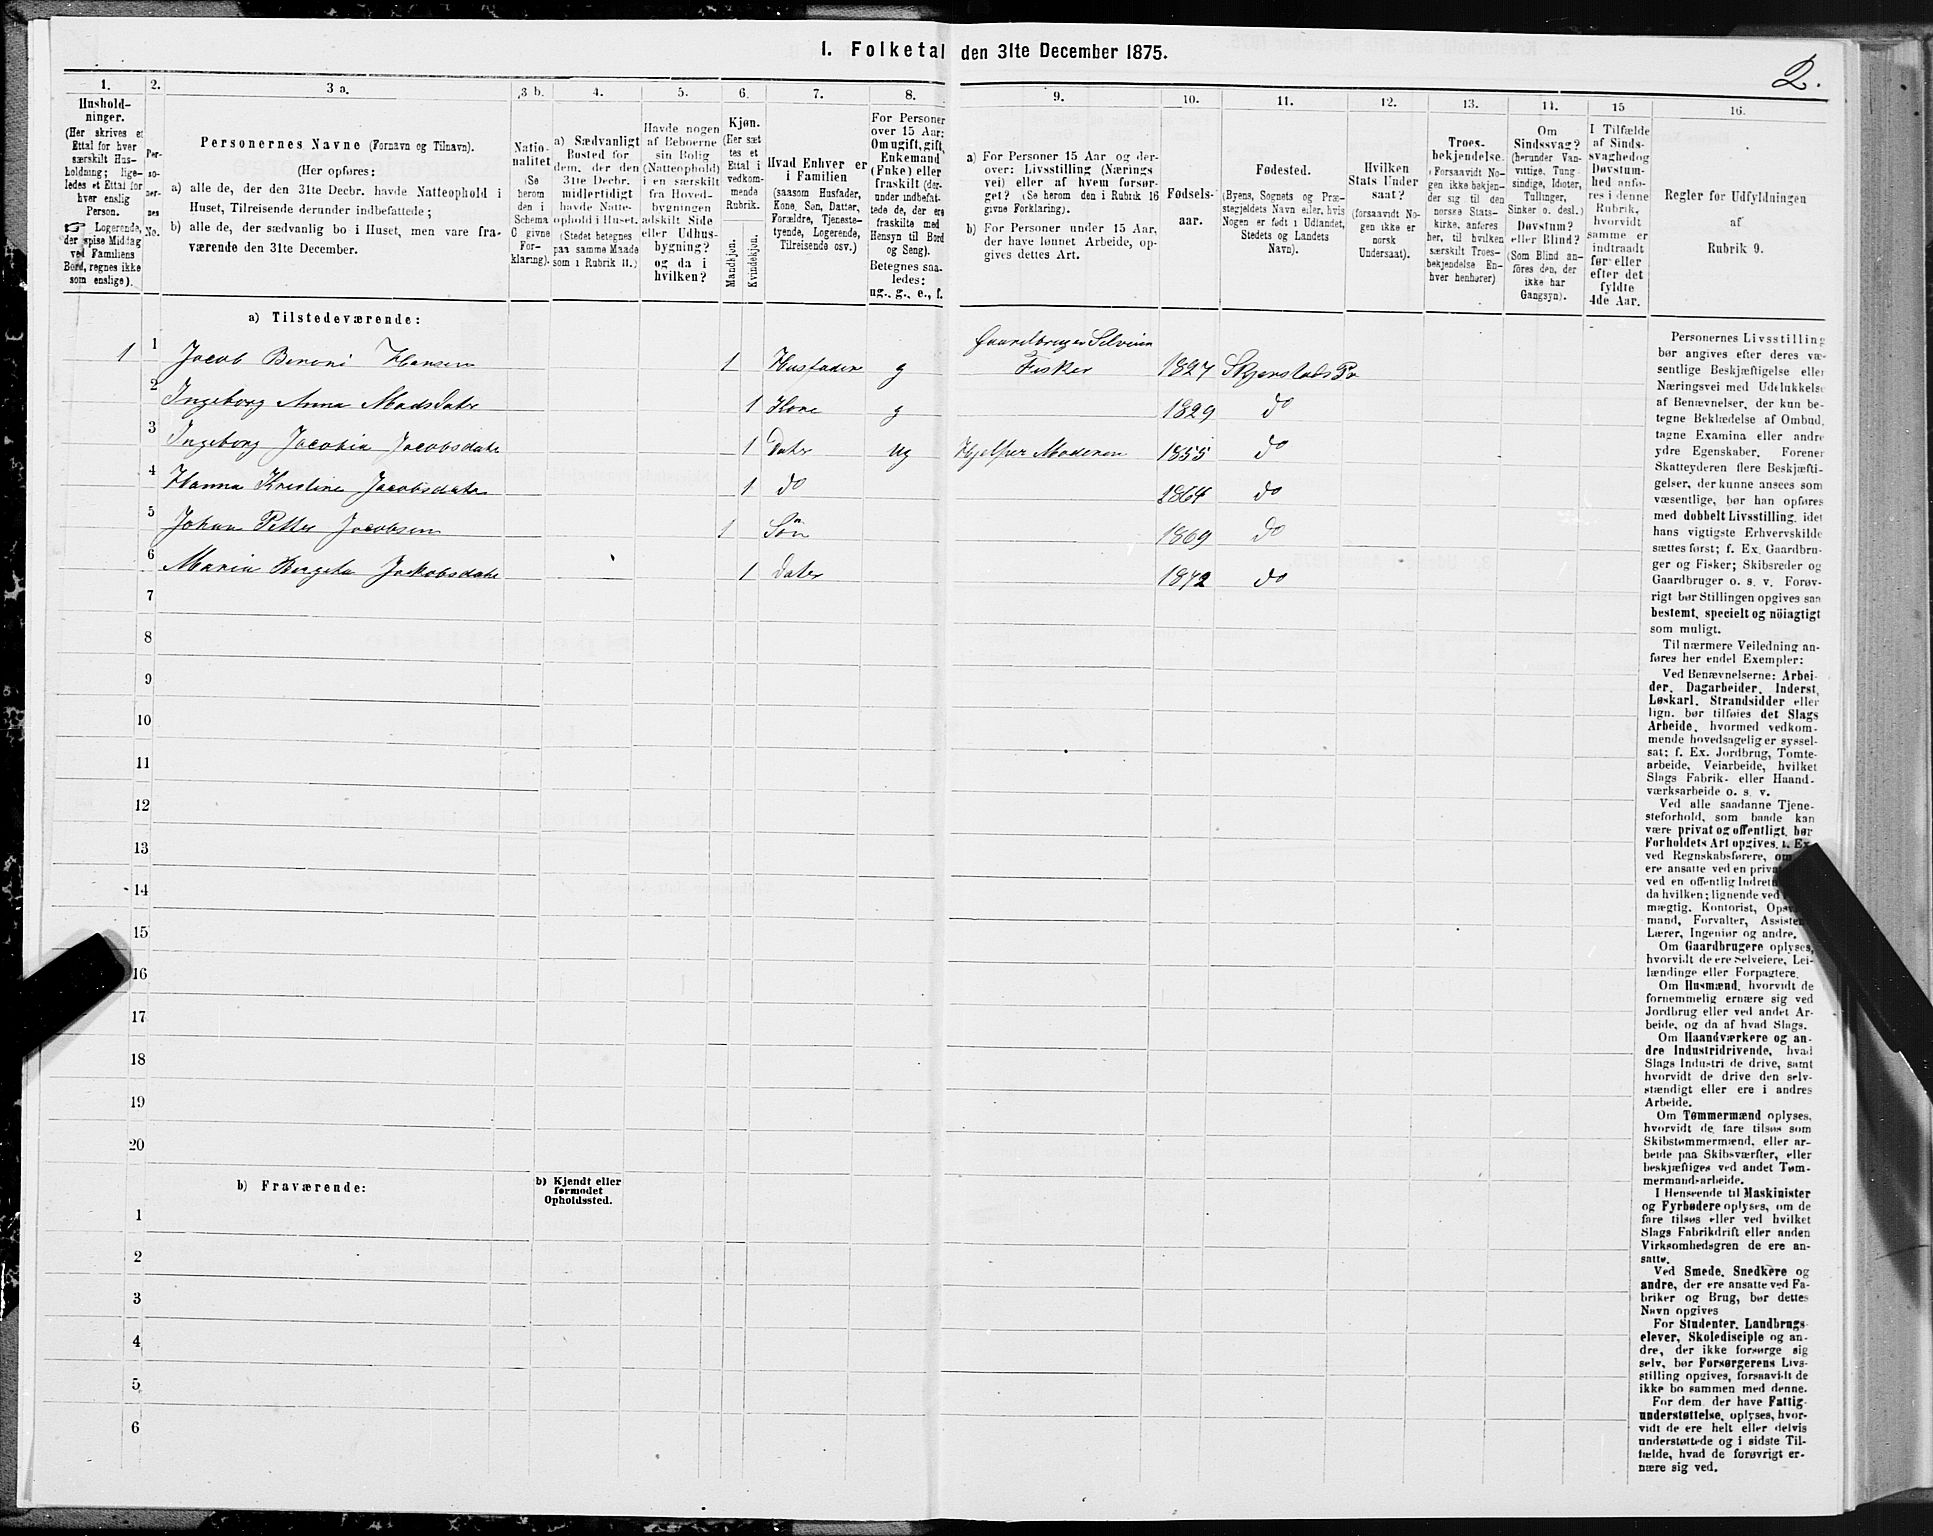 1. Folketal den 31te December 1875.
2.
1. 2. 3 a. 3 b. 4. 5. 6. 7. 8. 9. 10. 11. 12. 13. 14. 15 16.
Hushold-
ninger.
(Her skrives et
Ettal for hver
særskilt Hus-
holdning; lige-
ledes et Ettal for
hver enslig
Person.
☞ Logerende,
der spise Middag
ved Familiens
Bord, regnes ikke
som enslige).
Per-
so-
ner-
nes
No.
Personernes Navne (Fornavn og Tilnavn).
(Her opføres:
a) alle de, der den 31te Decbr. havde Natteophold i
Huset, Tilreisende derunder indbefattede;
b) alle de, der sædvanlig bo i Huset, men vare fra-
værende den 31te December.
Natio-
nalitet
(Se
herom
den i
Schema
C givne
For-
klaring).
a) Sædvanligt
Bosted for
dem, der den
31te Decbr.
midlertidigt
havde Natte-
ophold i Huset.
(Stedet betegnes
paa samme Maade
som i Rubrik 11.)
Havde nogen
af Beboerne
sin Bolig
(Natteophold)
i en særskilt
fra Hoved-
bygningen
adskilt Side-
eller Udhus-
bygning?
og da i
hvilken?
Kjøn.
(Her sæt-
tes et
Ettal i
vedkom-
mende
Rubrik.
Mandkjøn.
Kvindekjøn.
Hvad Enhver er
i Familien
(saasom Husfader,
Kone, Søn, Datter,
Forældre, Tjeneste-
tyende, Logerende,
Tilreisende osv.)
For Personer
over 15 Aar:
Om ugift, gift,
Enkemand
(Enke) eller
fraskilt (der-
under indbefat-
tede de, der ere
fraskilte med
Hensyn til Bord
og Seng).
Betegnes saa-
ledes:
ug., g., e., f.
a) For Personer 15 Aar og der-
over: Livsstilling (Nærings-
vei) eller af hvem forsør-
get? (Se herom den i Rubrik 16
givne Forklaring).
b) For Personer under 15 Aar,
der have lønnet Arbeide, op-
gives dettes Art.
Fødsels-
aar.
Fødested.
(Byens, Sognets og Præ-
stegjeldets Navn eller, hvis
Nogen er født i Udlandet,
Stedets og Landets
Navn).
Hvilken
Stats Under-
saat?
(forsaavidt No-
gen ikke er
norsk
Undersaat).
Troes-
bekjendelse.
(Forsaavidt No-
gen ikke bekjen-
der sig til den
norske Stats-
kirke, anføres
her, til hvilken
særskilt Troes-
bekjendelse En-
hver henhører)
Om
Sindssvag?
(herunder Van-
vittige, Tung-
sindige, Idioter,
Tullinger,
Sinker o. desl.)
Døvstum?
eller Blind?
(Som Blind an-
føres den, der
ikke har
Gangsyn).
I Tilfælde
af Sinds-
svaghed og
Døvstum-
hed anfø-
res i denne
Rubrik,
hvorvidt
samme er
indtraadt
før eller
efter det
fyldte
4de Aar.
Regler for Udfyldningen
af
Rubrik 9.
a) Tilstedeværende:
Gaardbruger Selveier
1 1 Jacob Benoni Hansen 1 Husfader g Fisker 1827 Skjerstads Pr
2 Ingeborg Anna Madsdatr 1 Kone g 1829 do
3 Ingeborg Jacobia Jacobsdatr 1 Dater ug Hjelper Moderen 1855 do
4 Hanna Kristine Jacobsdatr 1 do 1864 do
5 Johan Petter Jacobsen 1 Sön 1869 do
6 Maria Bergeta Jackobsdatr 1 Dater 1872 do
7
8
9
10
11
12
13
14
15
16
17
18
19
20
b) Fraværende:
b) Kjendt eller
formodet
Opholdssted.
1
2
3
4
5
6
Personernes Livsstilling
bør angives efter deres væ-
sentlige Beskjæftigelse eller
Næringsvei med Udelukkelse
af Benævnelser, der kun be-
tegne Beklædelse af Ombud,
tagne Examina eller andre
ydre Egenskaber. Forener
Skatteyderen flere Beskjæfti-
gelser, der kunne ansees som
væsentlige, bør han opføres
med dobbelt Livsstilling, idet
hans vigtigste Erhvervskilde
sættes først; f. Ex. Gaardbru-
ger og Fisker; Skibsreder og
Gaardbruger o. s. v. Forøv-
rigt bør Stillingen opgives saa
bestemt, specielt og nöiagtigt
som muligt.
Til nærmere Veiledning an-
føres her endel Exempler:
Ved Benævnelserne: Arbei-
der, Dagarbeider, Inderst,
Løskarl, Strandsidder eller
lign. bør tilføies det Slags
Arbeide, hvormed vedkom-
mende hovedsagelig er syssel-
sat; f. Ex. Jordbrug, Tomte-
arbeide, Veiarbeide, hvilket
Slags Fabrik- eller Haand-
værksarbeide o. s. v.
Ved alle saadanne Tjene-
steforhold, som baade kan
være privat og offentligt, bør
Forholdets Art opgives, t. Ex.
ved Regnskabsførere, om
ere ansatte ved en
ved en offentlig
da hvilken; lignende ved
mægtig, Kontorist,
mand, Forvalter,
Lærer, Ingeniør og andre.
Om Gaardbrugere oplyses,
hvorvidt de ere Selveiere, Lei-
lændinge eller Forpagtere.
Om Husmænd, hvorvidt de
fornemmelig ernære sig ved
Jordbrug eller ved andet Ar-
beide, og da af hvad Slags.
Om Haandværkere og an-
dre Industridrivende, hvad
Slags Industri de drive, samt
hvorvidt de drive den selv-
stændigt eller ere i andres
Arbeide.
Om Tømmermænd oplyses,
hvorvidt de fare tilsøs som
Skibstømmermænd, eller ar-
beide paa Skibsværfter, eller
beskjæftiges ved andet Tøm-
mermandsarbeide.
I Henseende til Maskinister
og Fyrbødere oplyses, om de
fare tilsøs eller ved hvilket
Slags Fabrikdrift eller anden
Virksomhedsgren de ere an-
satte.
Ved Smede, Snedkere og
andre, der ere ansatte ved Fa-
briker og Brug, bør dettes
Navn opgives
For Studenter, Landbrugs-
elever, Skoledisciple og an-
dre, der ikke forsørge sig
selv, bør Forsørgerens Livs-
stilling opgives, forsaavidt de
ikke bo sammen med denne.
For dem, der have Fattig-
understøttelse, oplyses, hvor-
vidt de ere helt eller delvis
understøttede og i sidste Til-
fælde, hvad de forøvrigt er-
nære sig ved.